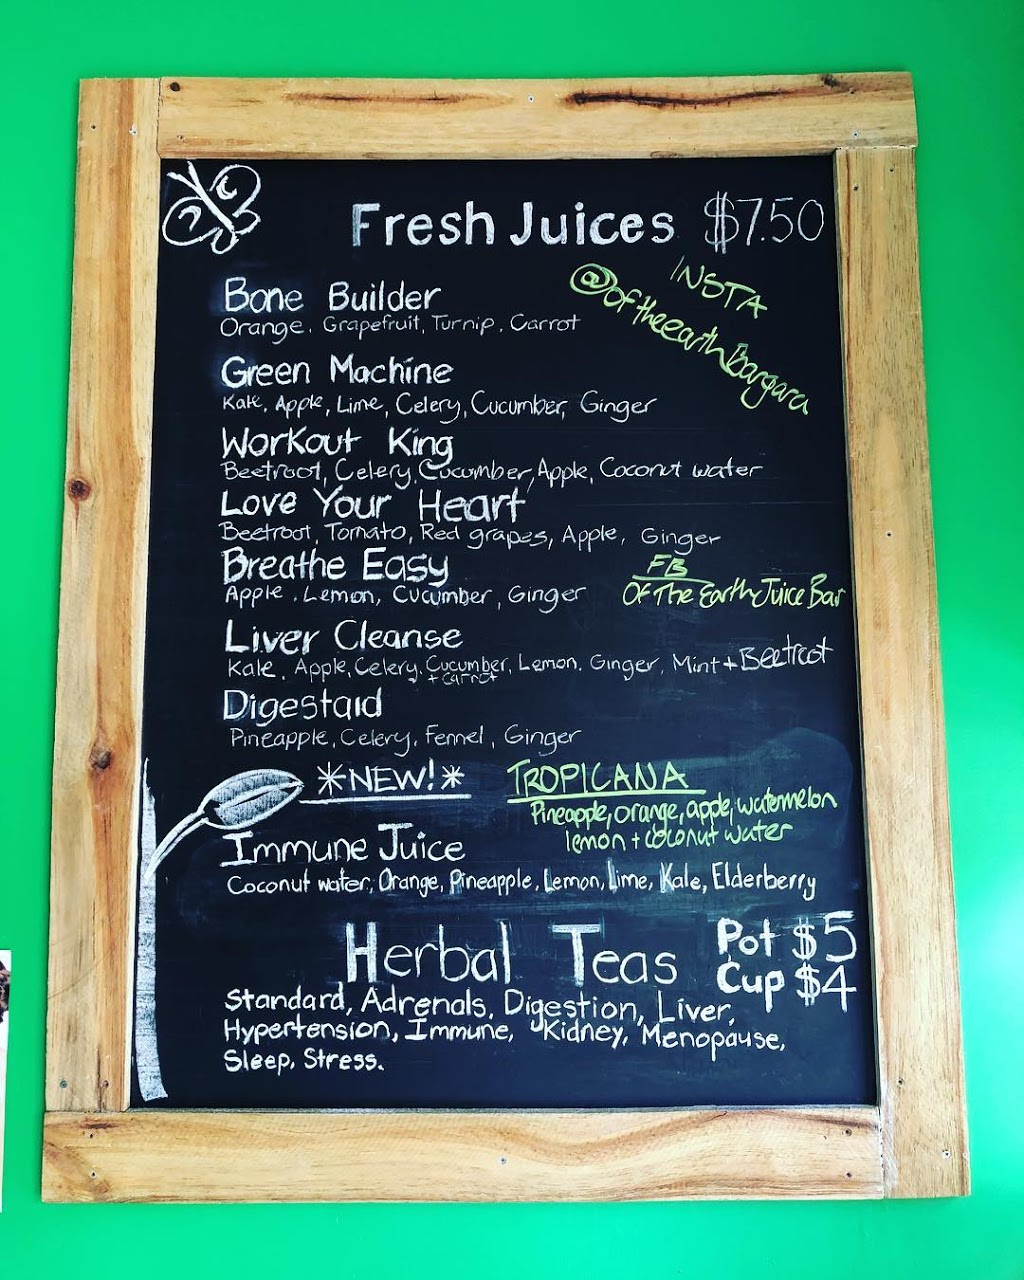 Fresh Juices $7.50
INSTA
@oftheearthbargara
Bone Builder
Orange, Grapefruit, Turnip, Carrot
Green Machine
Kale, Apple, Lime, Celery, Cucumber, Ginger
Workout King
Beetroot, Celery, Cucumber, Apple, Coconut water
Love Your Heart
Beetroot, Tomato, Red grapes, Apple, Ginger
Breathe Easy
Apple, Lemon, Cucumber, Ginger
FB
Of The Earth Juice Bar
Liver Cleanse
Kale, Apple, Celery, Cucumber, Lemon, Ginger, Mint + Beetroot
+ carrot
Digestaid
Pineapple, Celery, Fennel, Ginger
*NEW!*
TROPICANA
Pineapple, orange, apple, watermelon
lemon + coconut water
Immune Juice
Coconut water, Orange, Pineapple, Lemon, Lime, Kale, Elderberry
Herbal Teas
Pot $5
Cup $4
Standard, Adrenals, Digestion, Liver,
Hypertension, Immune, Kidney, Menopause,
Sleep, Stress.